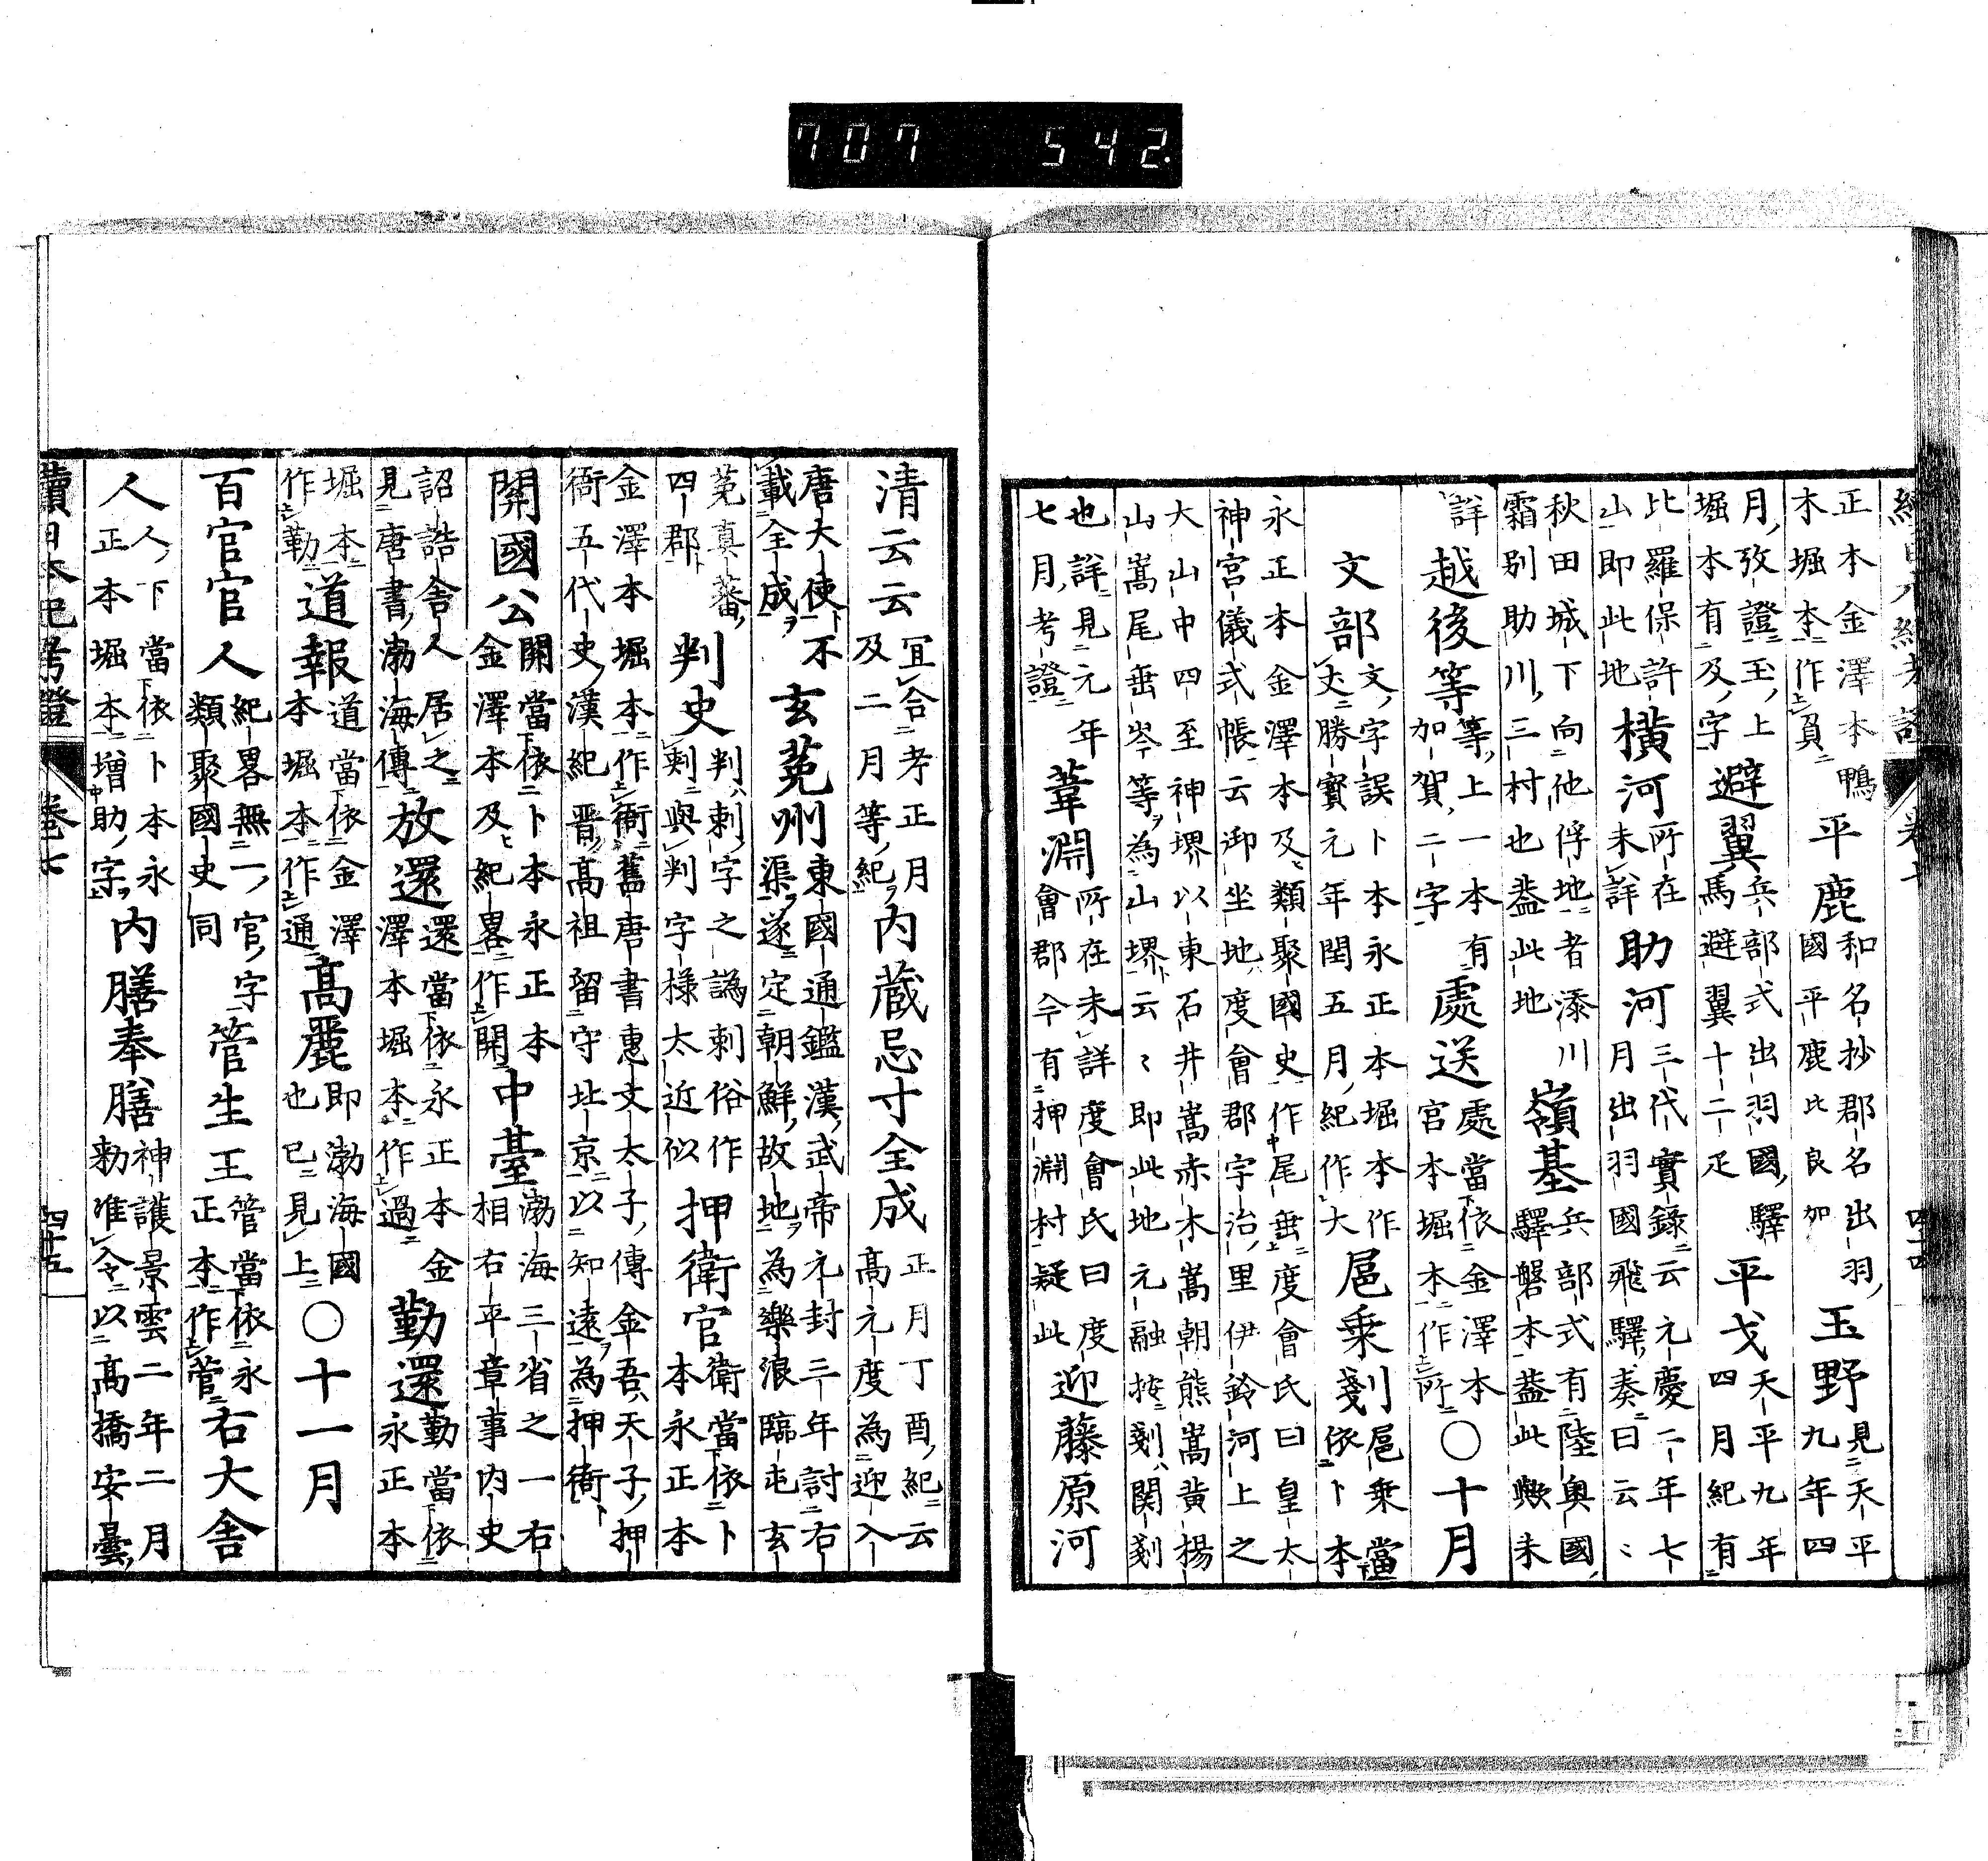 707 542.
正本金澤本鴨
木堀本作負
平鹿
和名抄郡名出羽、
國平鹿比良加
玉野
見天平
九年四
月、攷證至、上
堀本有及、字
避翼
兵部式出羽國、驛
馬避翼十二疋
平戈
天平九年
四月紀有
比羅保許
山即此地
横河
所在
未詳
助河
三代實錄云元慶二年七
月出羽國飛驛、奏曰云〻
秋田城下向化俘地者添川
霜別助川、三村也盖此地
嶺基
兵部式有陸奥國、
驛磐本盖此歟未
詳
越後等
等、上一本有
加賀、二字
處送
處當依金澤本
宮本堀本作所
〇十月
文部
文、字誤卜本永正本堀本作
丈勝寶元年閏五月、紀作大
扈乗剗
扈乗當
依卜本
永正本金澤本及類聚國史作尾垂度會氏曰皇太
神宮儀式帳云御坐地度會郡宇治里伊鈴河上之
大山中四至神堺以東石井嵩赤木嵩朝熊嵩黄楊
山嵩尾垂岑等為山堺云〻即此地元融按剗関剗
也詳見元年
七月、考證
葦淵
所在未詳度會氏曰度
會郡今有押淵村疑此
迎藤原河
清云云
冝合考正月
及二月等、紀
内蔵忌寸全成
正月丁酉、紀云
髙元度為迎入
唐大使不
載全成
玄菟州
東國通鑑漢武帝元封三年討右
渠遂定朝鮮、故地為樂浪臨屯玄
菟真蕃、
四郡
判史
判、刺、字之譌刺俗作
剌與判字様太近似
押衛官
衛當依卜
本永正本
金澤本堀本作衙舊唐書惠文太子、傳金吾、天子、押
衙五代史漢紀晋髙祖留守北京以知遠為押衙
開國公
開當依卜本永正本
金澤本及紀畧作開
中臺
渤海三省之一右
相右平章事内史
詔誥舍人居之
見唐書、渤海傳
放還
還當依永正本金
澤本堀本作過
勤還
勤當依
永正本
堀本
作勒
道報
道當依金澤
本堀本作通
髙麗
即渤海國
也已見上
〇十一月
百官官人
紀畧無一、官、字
類聚國史同
管生王
管當依永
正本作菅
右大舍
人
人、下當依卜本永
正本堀本増助、字
内膳奉膳
神護景雲二年二月
勅准令以髙橋安曇、
續日本紀考證
卷七
四十五